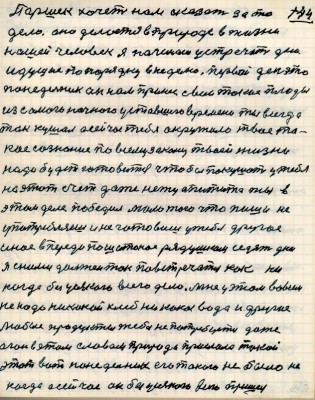 Паршек хочет нам сказат за то 174
дело. оно делается в природе в жизни
нашей человек я начинаю устречат дни
идущие по порядку в неделю. первой ден это
понеделник он нам принёс свои такие плоды
из самого начного уставшего времени ты всегда
так кушал а сейчас тебя окружило твое та-
кое сознание по всему закону твоей жизни
надо будет готовится чтоб и покушат у тебя
на этот счет даже нету апитита ты в
этом деле победил мало того что пищи не
употребляеш и не готовиш у тебя другое
иное впереди по щоту такое рядушком седят дни
я с ними должен так повстречатся как ни
когда бы целкого всего дело. Мне у этом вовсем
не надо никакой хлеб ни кака вода и другое
любые продукты тебе не потребуется даже
огон в этом словам природа прислала такой
этот вот понеделник его такого не было не
когда а сейчас он бы целкого день пришёл